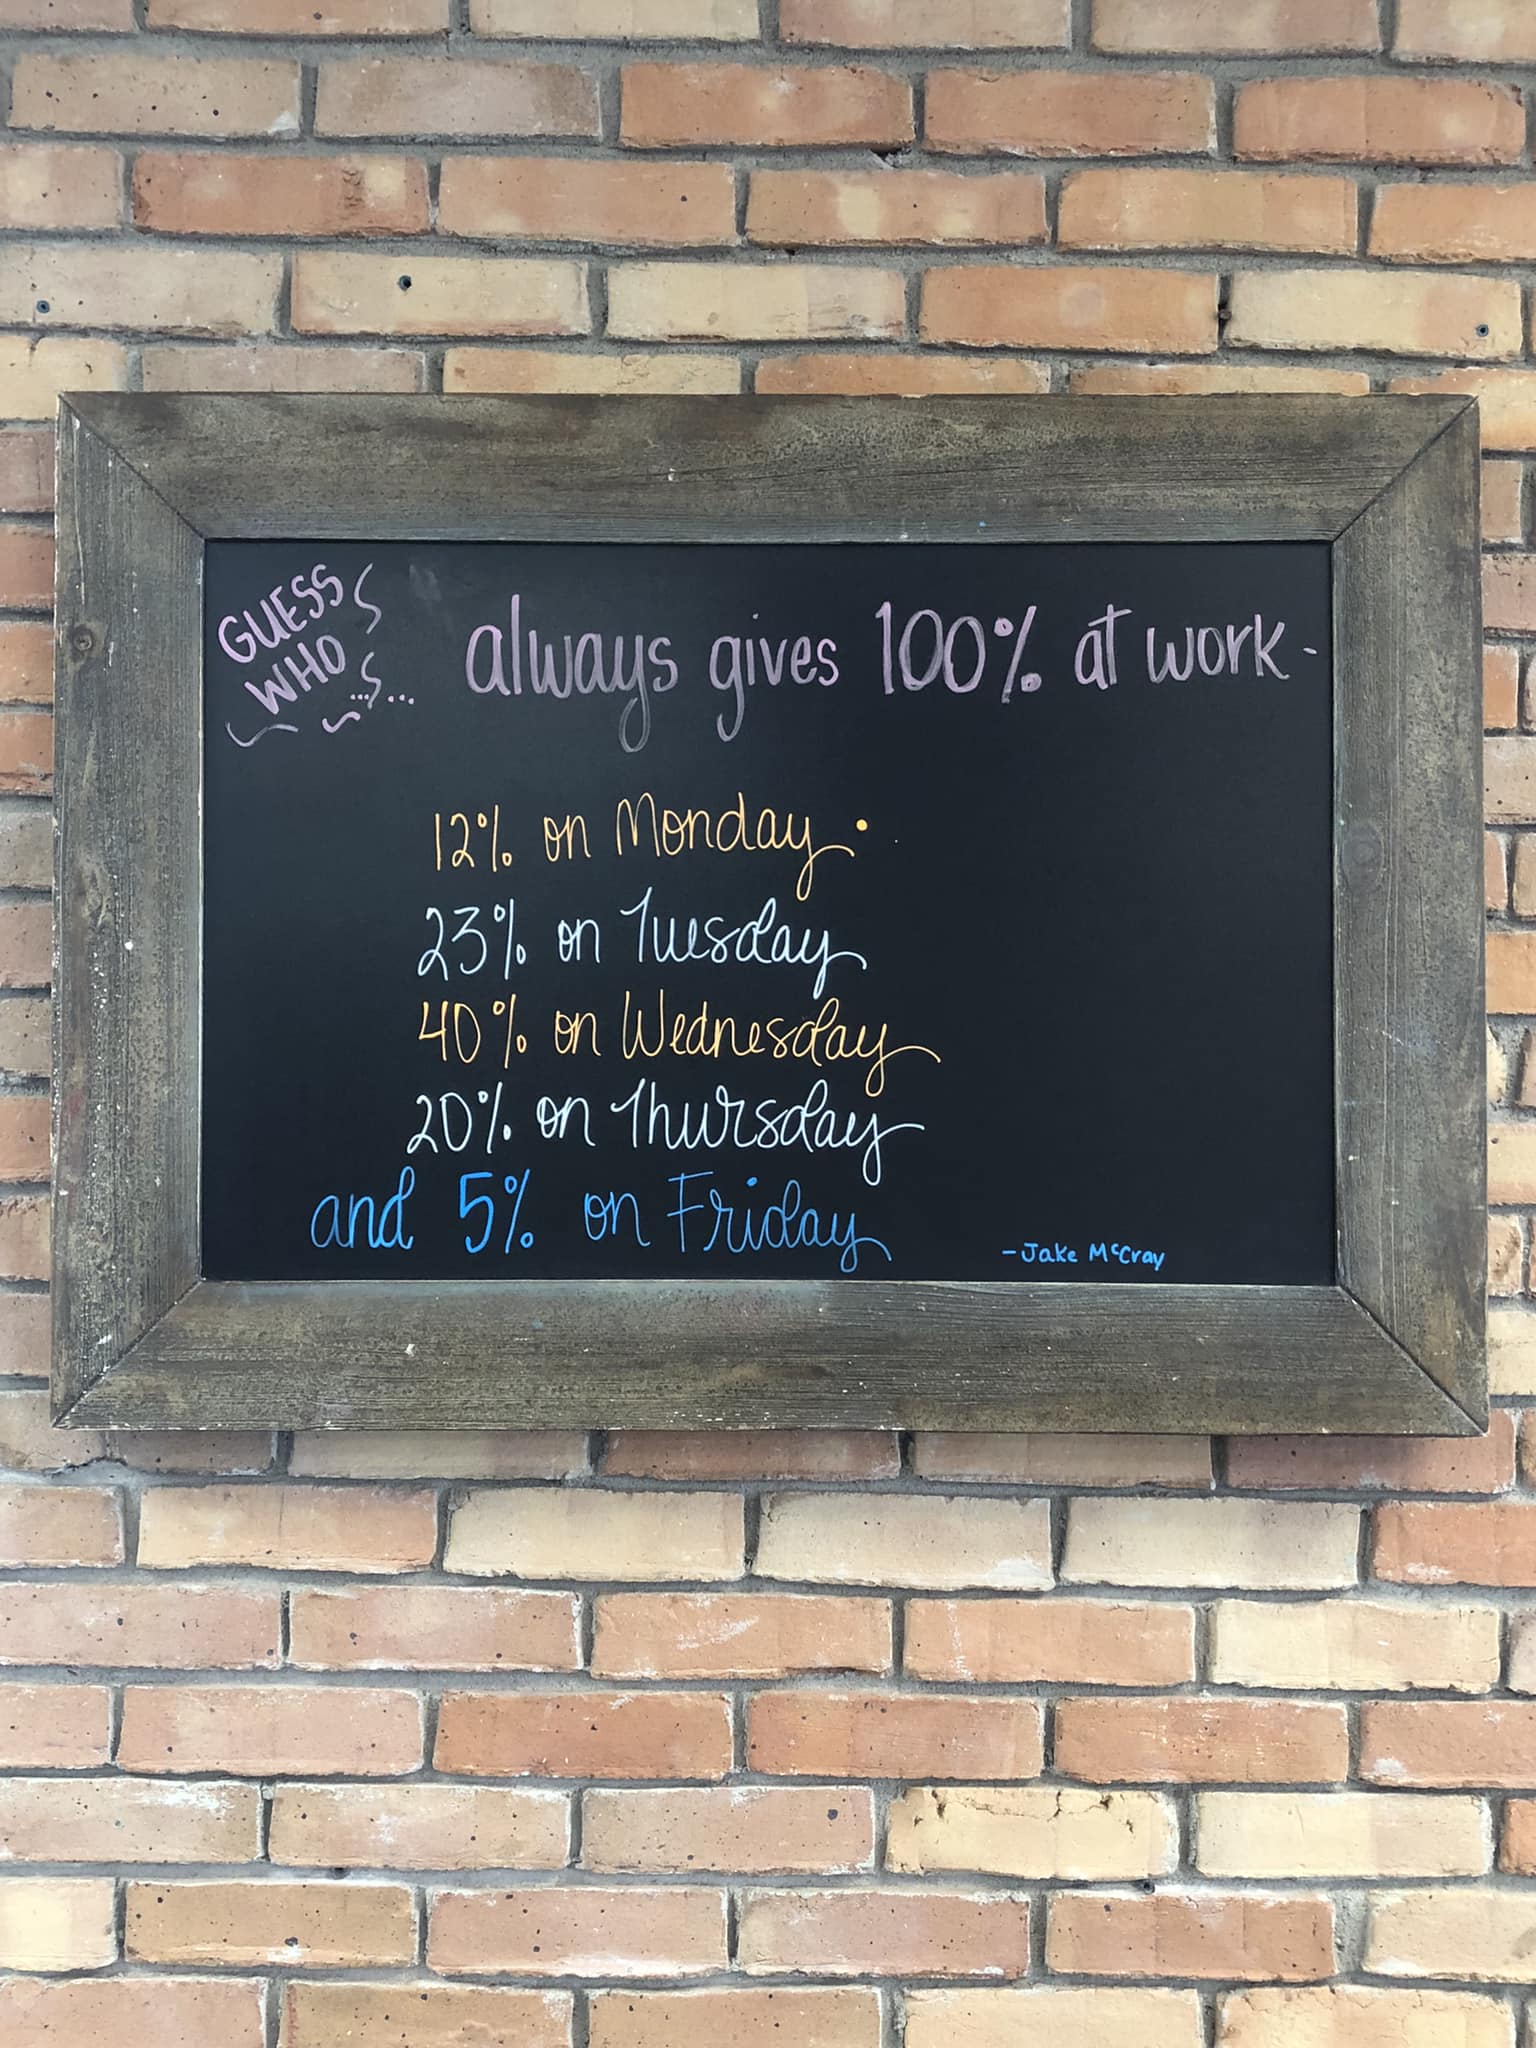 GUESS
WHO ......
always gives 100% at work -
12% on Monday.
23% on Tuesday
40% on Wednesday
20% on Thursday
and 5% on Friday
-Jake McCray